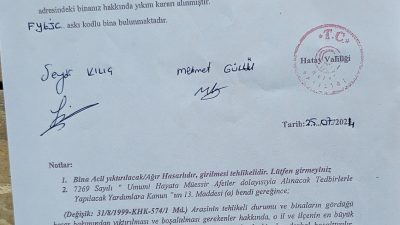 adresindeki binanız hakkında yıkım kararı alınmıştır.
FYBJC askı kodlu bina bulunmaktadır.
T.C.
Hatay Valiliği
Mehmet
Tarih: 25.07.2024
Notlar:
1. Bina Acil yıktırılacak/Ağır Hasarlıdır, girilmesi tehlikelidir. Lütfen girmeyiniz
2. 7269 Sayılı " Umumi Hayata Müessir Afetler dolayısıyla Alınacak Tedbirlerle
Yapılacak Yardımlara Kanun "un 13. Maddesi (a) bendi gereğince;
(Değişik: 31/8/1999-KHK-574/1 Md.) Arazinin tehlikeli durumu ve binaların gördüğü
hasar bakımından yıktırılması ve boşaltılması gerekenler hakkında, o il ve ilçenin en büyük